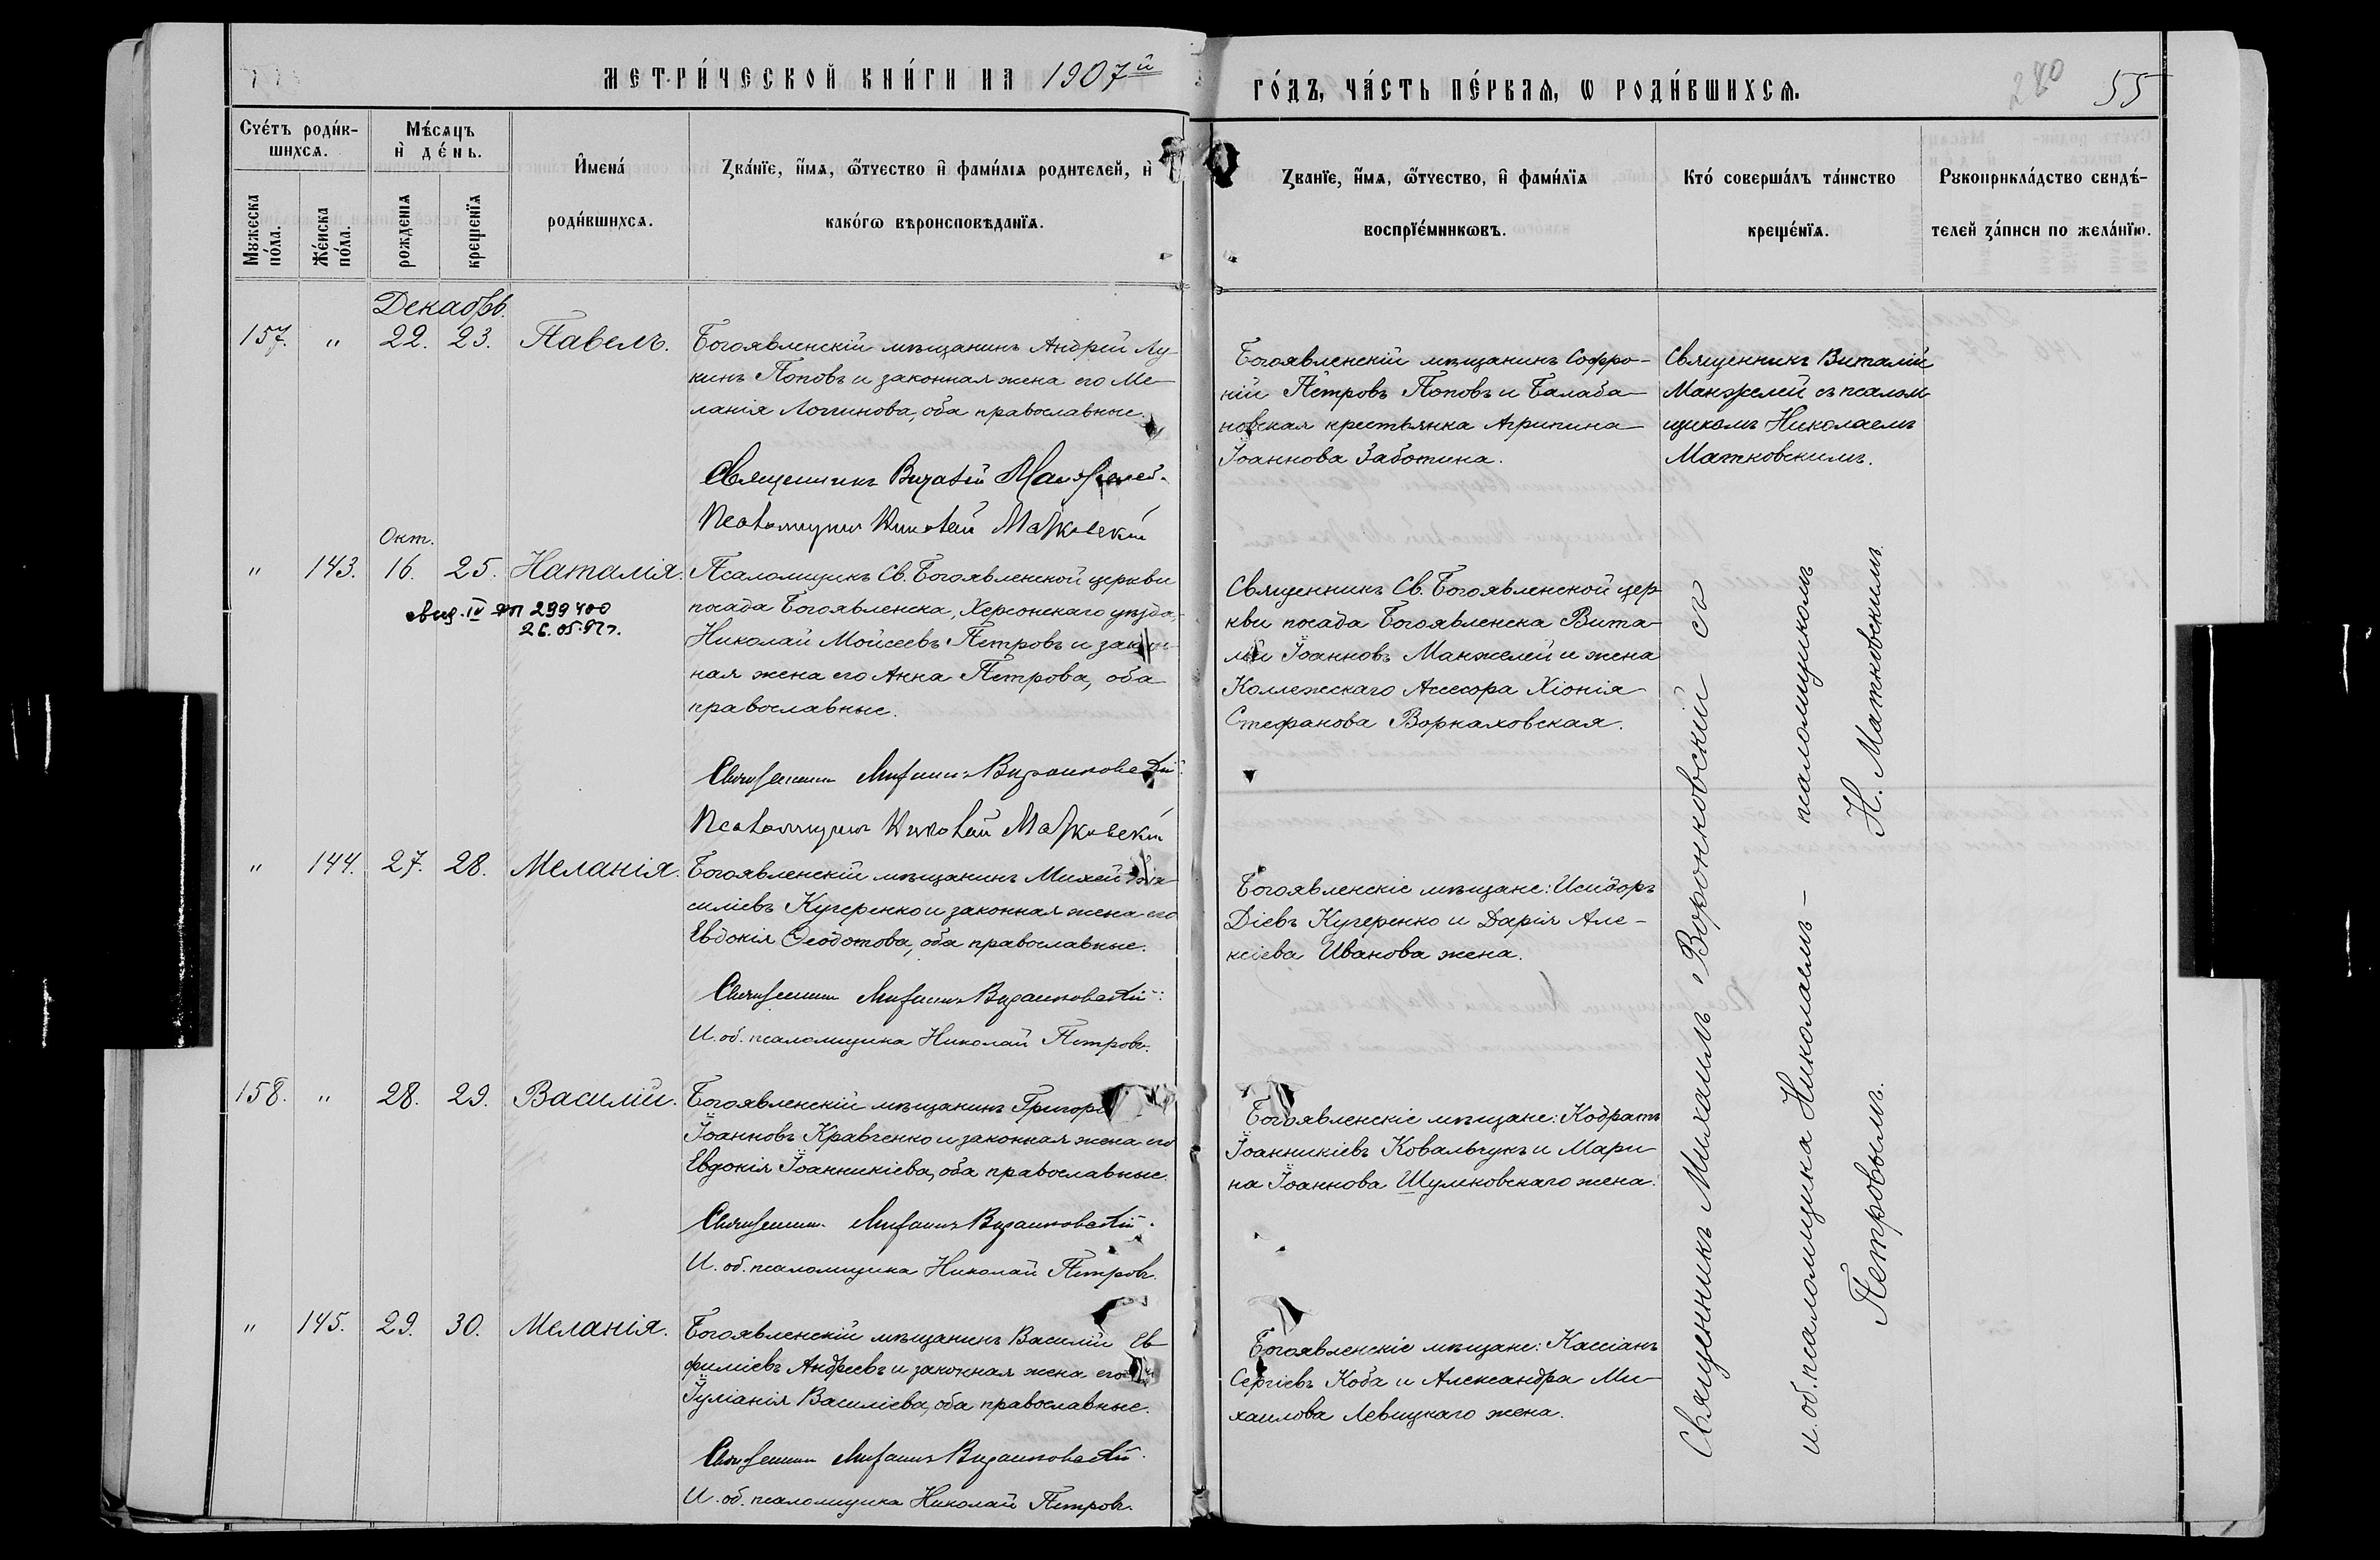 МЕТРИ́ЧЕСКОЙ КНИ́ГИ НА 1907й
ГО́ДЪ, ЧА́СТЬ ПЕ́РВАЯ, Ѡ РОДИ́ВШИХСЯ.
280
55
Счетъ роди́в-
шихся.
Мужеска
по́ла.
Же́нска
по́ла.
Мѣ́сяцъ
и҆ де́нь.
рожденія
крещенїя
И҆мена́
роди́вшихся.
Зва́нїе, и҆́мя, ѻ҆́тчество и҆ фами́лія родителей, и҆
како́гѡ вѣроисповѣданїя.
Званїе, и҆́мя, ѻ҆́тчество, и҆ фами́лїя
воспрїе́мникѡвъ.
Кто́ соверша́лъ та́инство
креще́нїя.
Рꙋкоприкла́дство свидѣ́-
телей за́писи по жела́нїю.
Декабрь.
157. " 22. 23. Павелъ.
Богоявленскій мѣщанинъ Андрей Лу
кинъ Поповъ и законная жена его Ме-
ланія Логгинова, оба православные.
Священникъ Виталій Манжелей.
Псаломщикъ Николай Матковскій
Богоявленскій мѣщанинъ Софро-
ній Петровъ Поповъ и Балаба-
новская крестьянка Агрипина
Іоаннова Заботина.
Священникъ Виталій
Манжелей съ псалом
щикомъ Николаемъ
Матковскимъ.
Окт.
" 143. 16. 25. Наталія.
299400
26.05.
Псаломщикъ Св. Богоявленской церкви
посада Богоявленска, Херсонскаго уѣзда,
Николай Мойсеевъ Петровъ и закон-
ная жена его Анна Петрова, оба
православные.
Священникъ Михаилъ Воронковскій
Псаломщикъ Николай Матковскій
Священникъ Св. Богоявленской цер-
кви посада Богоявленска Вита-
лій Іоанновъ Манжелей и жена
Коллежскаго Ассесора Хіонія
Стефанова
" 144. 27. 28. Меланія.
Богоявленскій мѣщанинъ Михей Ва-
силіевъ Кучеренко и законная жена его
Евдокія Ѳеодотова, оба православные.
Священникъ Михаилъ Воронковскій.
И. об. псаломщика Николай Петровъ.
Богоявленскіе мѣщане: Исидоръ
Діевъ Кучеренко и Дарія Але-
ксіева Иванова жена.
158. " 28. 29. Василій.
Богоявленскій мѣщанинъ Григорій
Іоанновъ Кравченко и законная жена его
Евдокія Іоанникіева, оба православные.
Священникъ Михаилъ Воронковскій.
И. об. псаломщика Николай Петровъ.
Богоявленскіе мѣщане: Кодратъ
Іоанникіевъ Ковальчукъ и Мари-
на Іоаннова Шулковскаго жена.
" 145. 29. 30. Меланія.
Богоявленскій мѣщанинъ Василій Ев-
фиміевъ Андреевъ и законная жена его
Іуліанія Василіева, оба православные.
Священникъ Михаилъ Воронковскій.
И. об. псаломщика Николай Петровъ.
Богоявленскіе мѣщане: Кассіанъ
Сергіевъ Коба и Александра Ми-
хаилова Левицкаго жена.
Священникъ Михаилъ Воронковскій съ
и. об. псаломщика Николаемъ — псаломщикомъ
Петровымъ. Н. Матковскимъ.